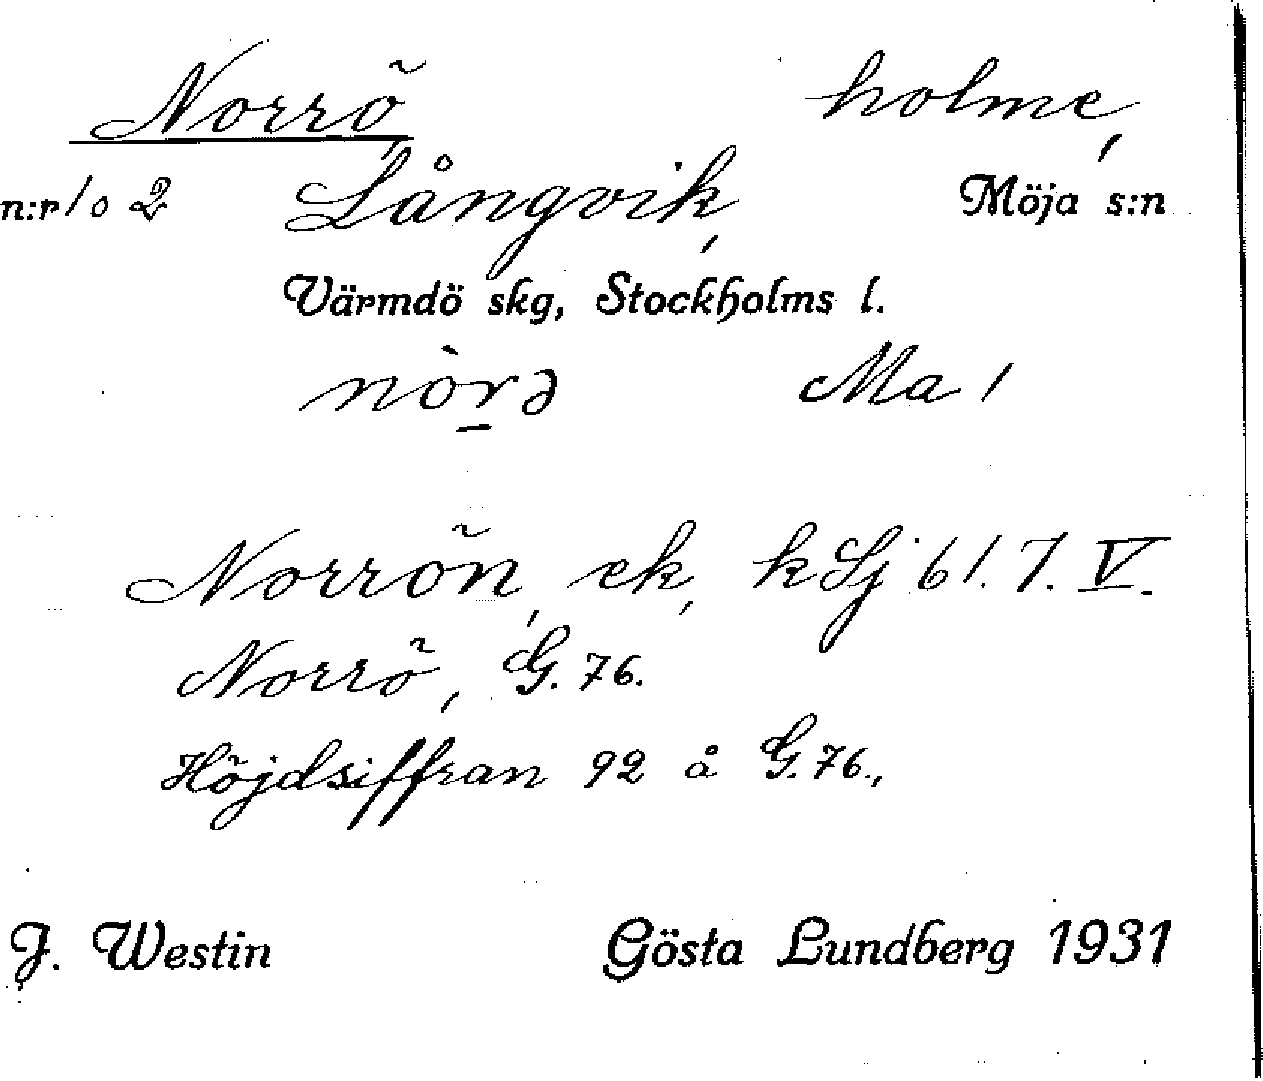 Norrö, holme,
n:r 1 o 2 Långvik, Möja s:n
Värmdö skg, Stockholms l.
nòrə Ma 1
Norrön, ek, k Sj 61. 7. V.
Norrö, G. 76.
Höjdsiffran 92 å G. 76.,
J. Westin Gösta Lundberg 1931